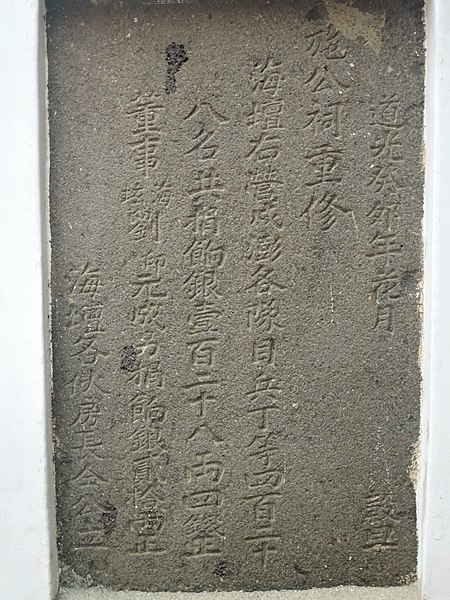 道光癸卯年花月 穀旦
施公祠重修
海壇右營戍澎各隊目兵丁等四百二十
八名共捐餉銀壹百二十八兩四錢正
董事海壇劉元成另捐餉銀貳拾兩正
海壇各伙房長仝公立